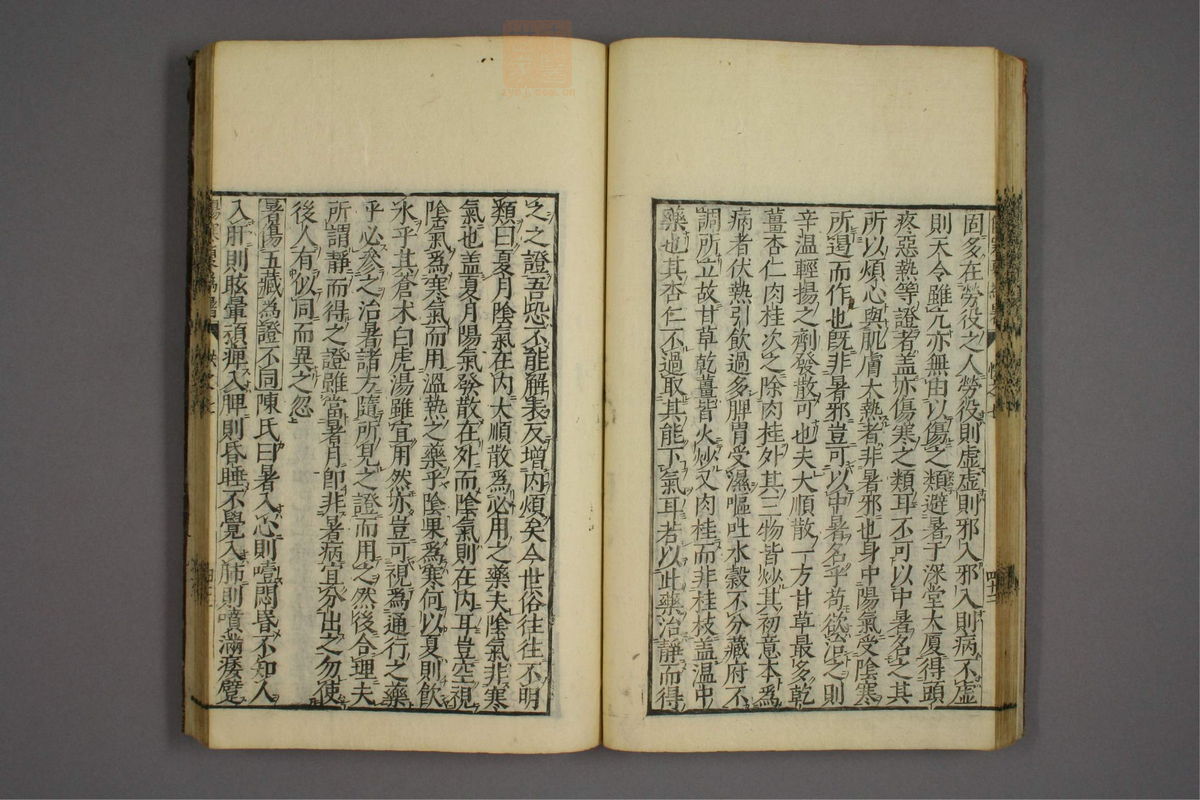 固多在勞役之人勞役則虛虛則邪入邪入則病不虛
則天令雖亢亦無由以傷之類避暑于深堂大厦得頭
疼惡熱等證者盖亦傷寒之類耳不可以中暑名之其
所以煩心與肌膚大熱者非暑邪也身中陽氣受陰寒
所遏而作也既非暑邪豈可以中暑名乎苟欲治之則
辛温輕揚之劑發散可也夫大順散一方甘草最多乾
薑杏仁肉桂次之除肉桂外其三物皆炒其初意本為
病者伏熱引飲過多脾胃受濕嘔吐水穀不分藏府不
調所立故甘草乾薑皆火炒又肉桂而非桂枝盖温中
藥也其杏仁不過取其能下氣耳若以此藥治靜而得
之之證吾恐不能解表反增内煩矣今世俗往往不明
類曰夏月陰氣在内大順散為必用之藥夫陰氣非寒
氣也盖夏月陽氣發散在外而陰氣則在内耳豈空視
陰氣為寒氣而用溫熱之藥乎陰果為寒何以夏則飲
氷乎其蒼术白虎湯雖宜用然亦豈可視為通行之藥
乎必參之治暑諸方隨所見之證而用之然後合理夫
所謂靜而得之之證雖當暑月即非暑病宜分出之勿使
後人有似同而異之忽
暑傷五藏為證不同陳氏曰暑入心則噎悶昏不知人
入肝則眩暈頑痺入脾則昏睡不覺入肺則噴滿痿躄